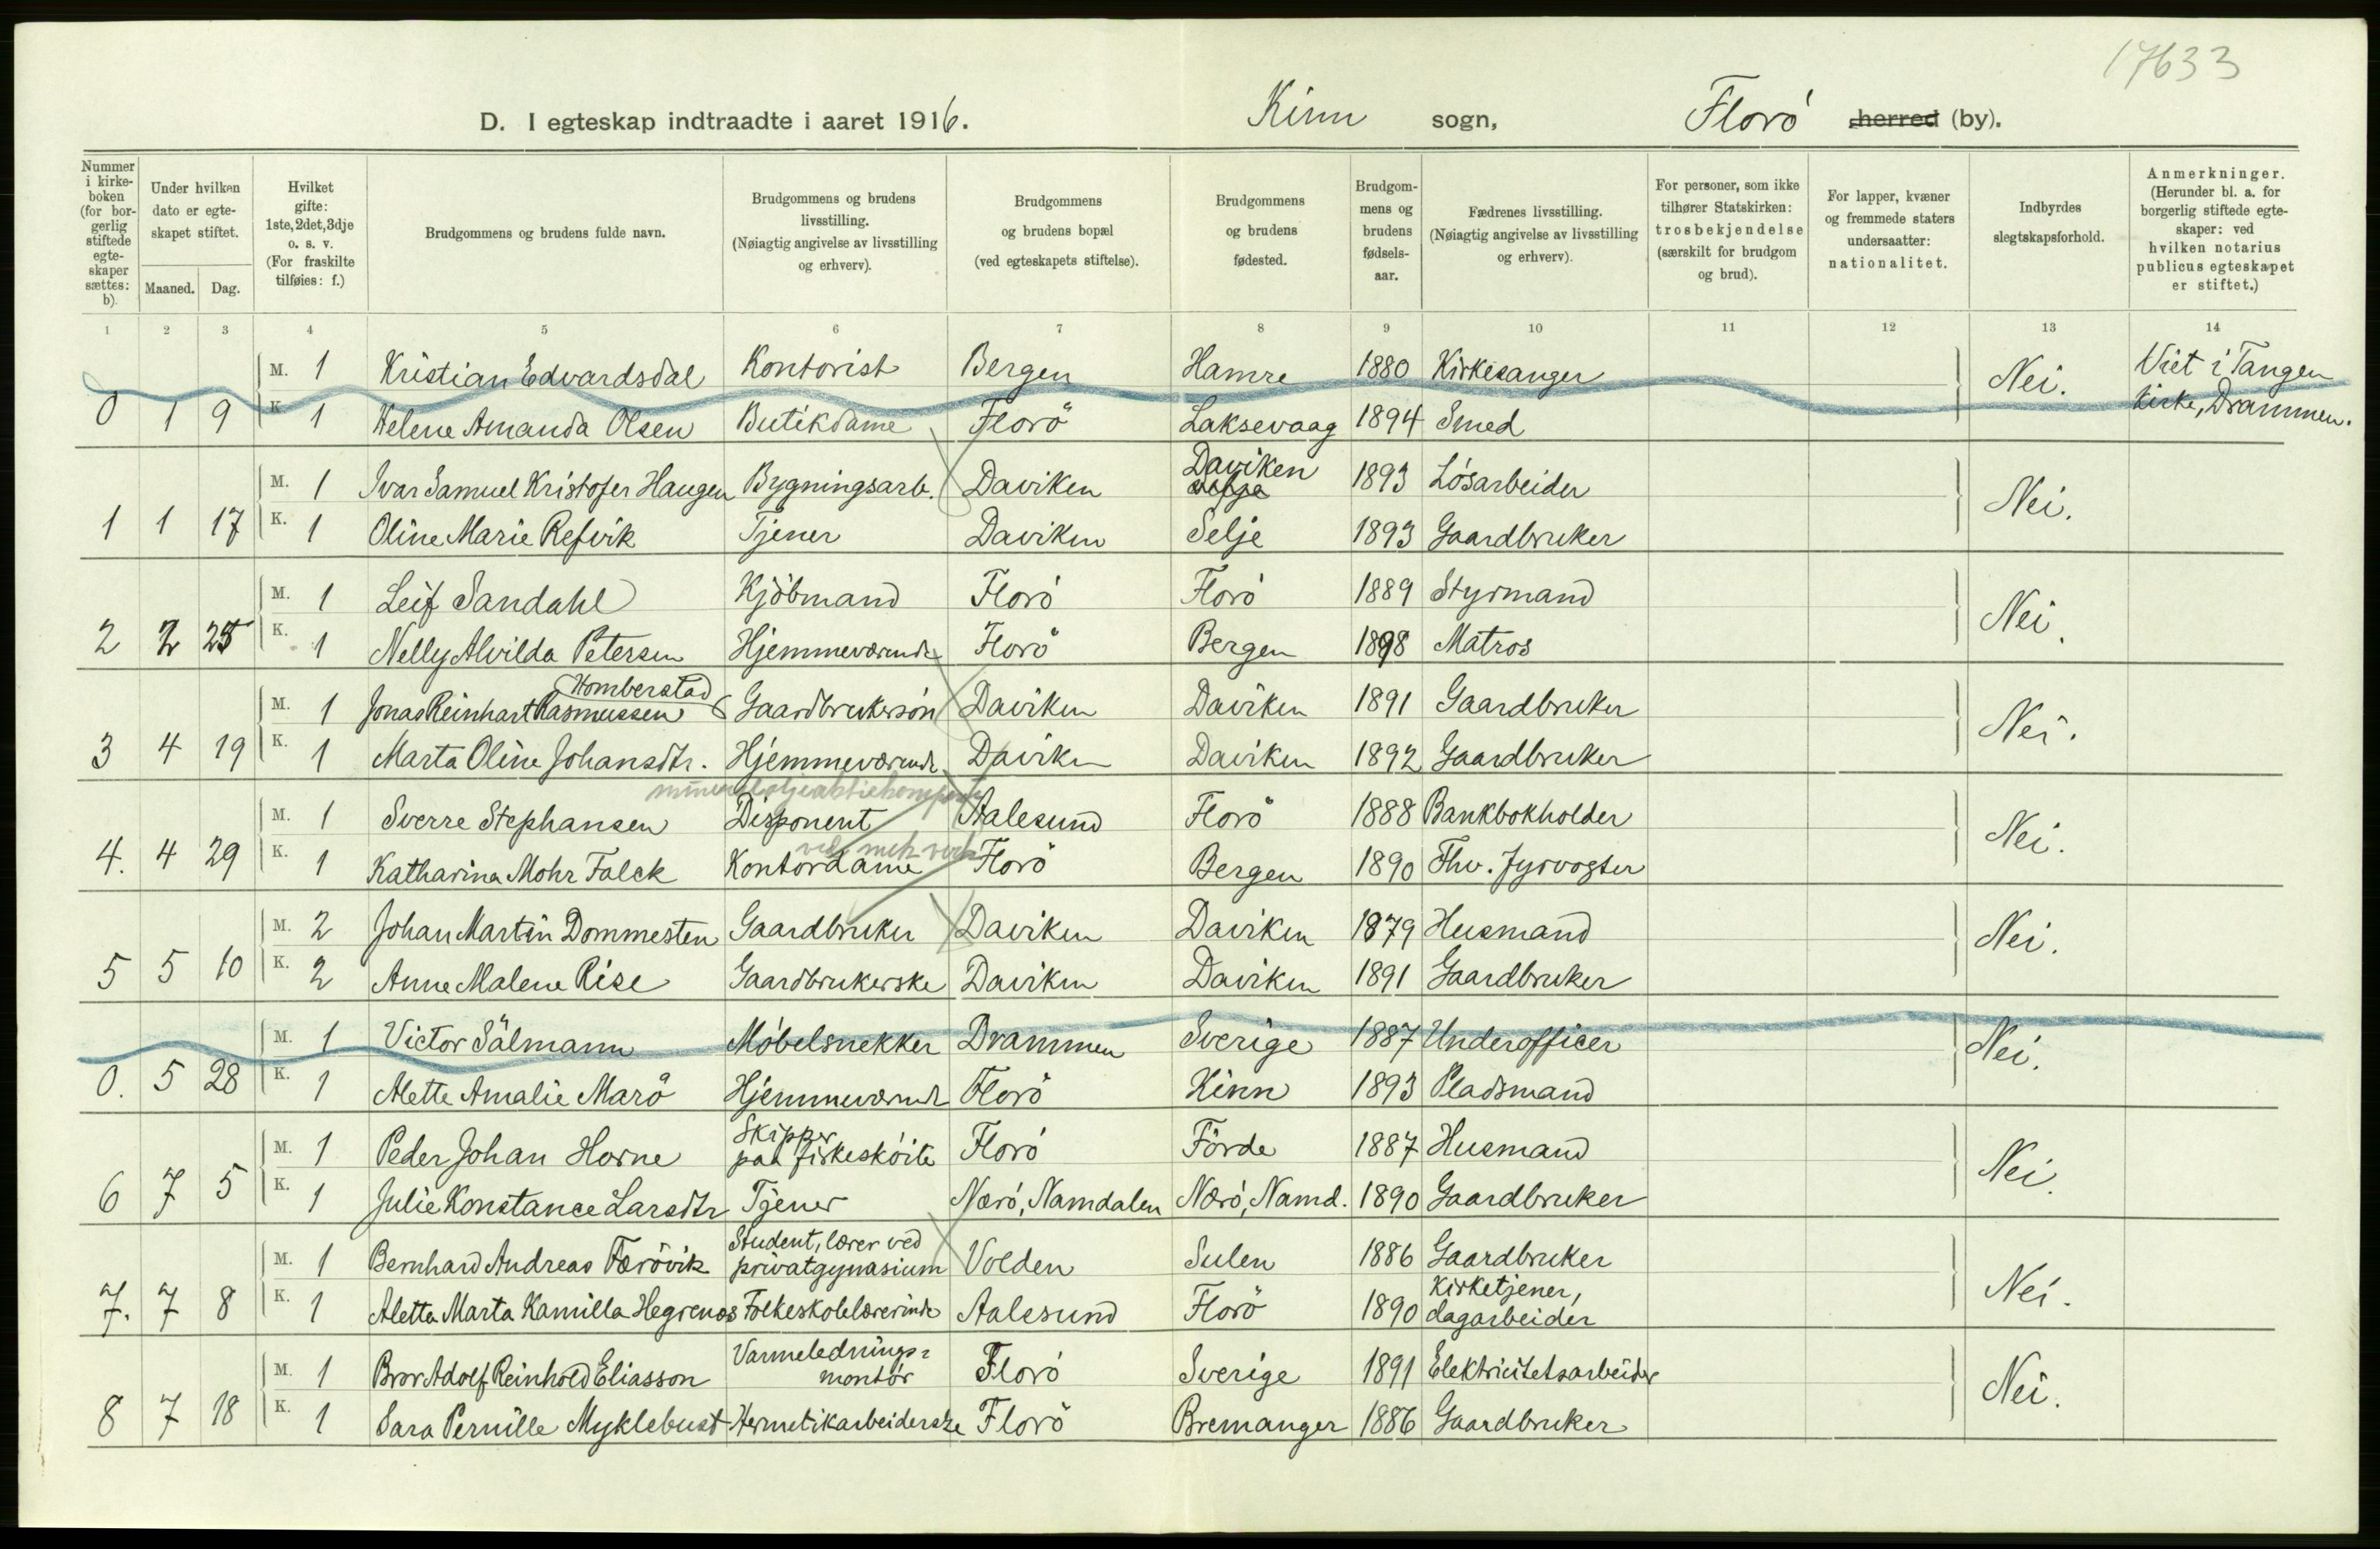 17633
D. I egteskap indtraadte i aaret 1916. Kinn sogn, Florö herred (by).
Nummer i kirkeboken (for borgerlig stiftede egteskaper sættes: b). Under hvilken dato er egteskapet stiftet. Maaned. Dag. Hvilket gifte: 1ste, 2det, 3dje o. s. v. (For fraskilte tilføies: f.) Brudgommens og brudens fulde navn. Brudgommens og brudens livsstilling. (Nøiagtig angivelse av livsstilling og erhverv). Brudgommens og brudens bopæl (ved egteskapets stiftelse). Brudgommens og brudens fødested. Brudgommens og brudens fødselsaar. Fædrenes livsstilling. (Nøiagtig angivelse av livsstilling og erhverv). For personer, som ikke tilhører Statskirken: trosbekjendelse (særskilt for brudgom og brud). For lapper, kvæner og fremmede staters undersaatter: nationalitet. Indbyrdes slegtskapsforhold. Anmerkninger. (Herunder bl. a. for borgerlig stiftede egteskaper: ved hvilken notarius publicus egteskapet er stiftet.)
1 2 3 4 5 6 7 8 9 10 11 12 13 14
M. 1 Kristian Edvardsdal Kontorist Bergen Hamre 1880 Kirkesanger Nei. Viet i Tangen
0 1 9 K. 1 Helene Amanda Olsen Butikdame Florö Laksevaag 1894 Smed kirke, Drammen.
M. 1 Ivar Samuel Kristofer Haugen Bygningsarb. Daviken Daviken Selje 1893 Lösarbeider Nei.
1 1 17 K. 1 Oline Marie Refvik Tjener Daviken Selje 1893 Gaardbruker
M. 1 Leif Sandahl Kjöbmand Florö Florö 1889 Styrmand Nei.
2 2 25 K. 1 Nelly Alvilda Petersen Hjemmeværende Florö Bergen 1898 Matros
Homberstad
M. 1 Jonas Reinhart Rasmussen Gaardbrukersön Daviken Daviken 1891 Gaardbruker Nei.
3 4 19 K. 1 Marta Oline Johansdtr. Hjemmeværende Daviken Daviken 1892 Gaardbruker
M. 1 Sverre Stephansen Disponent Aalesund Florö 1888 Bankbokholder Nei.
ved mek verk
4. 4 29 K. 1 Katharina Mohr Falck Kontordame Florö Bergen 1890 Fhv. Fyrvogter
M. 2 Johan Martin Dommesten Gaardbruker Daviken Daviken 1879 Husmand Nei.
5 5 10 K. 2 Anne Malene Rise Gaardbrukerske Daviken Daviken 1891 Gaardbruker
M. 1 Victor Sälmann Möbelsnekker Drammen Sverige 1887 Underofficer Nei.
0. 5 28 K. 1 Alette Amalie Marö Hjemmeværende Florö Kinn 1893 Pladsmand
M. 1 Peder Johan Horne Skipper paa fiskesköite Florö Förde 1887 Husmand Nei.
6 7 5 K. 1 Julie Konstance Larsdtr Tjener Nærö, Namdalen Nærö, Namd. 1890 Gaardbruker
M. 1 Bernhard Andreas Færövik Student, lærer ved privatgynasium Volden Sulen 1886 Gaardbruker Nei.
7. 7 8 K. 1 Aletta Marta Kamilla Hegrenes Folkeskolelærerinde Aalesund Florö 1890 Kirketjener, dagarbeider
M. 1 Bror Adolf Reinhold Eliasson Varmelednings=montör Florö Sverige 1891 Elektricitetsarbeider Nei.
8 7 18 K. 1 Sara Pernille Myklebust Hermetikarbeiderske Florö Bremanger 1886 Gaardbruker